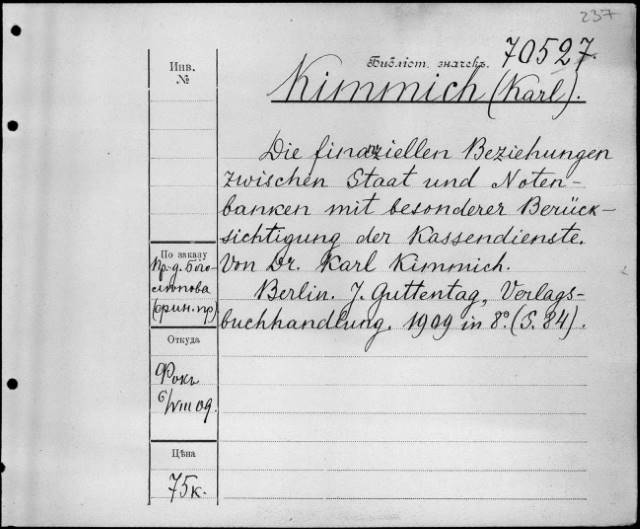 237
Библіот. значекъ. 70527.
Инв.
№
Kimmich (Karl).
Die finanziellen Beziehungen
zwischen Staat und Noten-
banken mit besonderer Berück-
sichtigung der Kassendienste.
Von Dr. Karl Kimmich.
Berlin. J. Guttentag, Verlags-
buchhandlung. 1909 in 8°. (S. 84).
По заказу
Пр-д.
(фин. пр)
Откуда
Фокъ
6/VIII 09.
Цѣна
75 к.